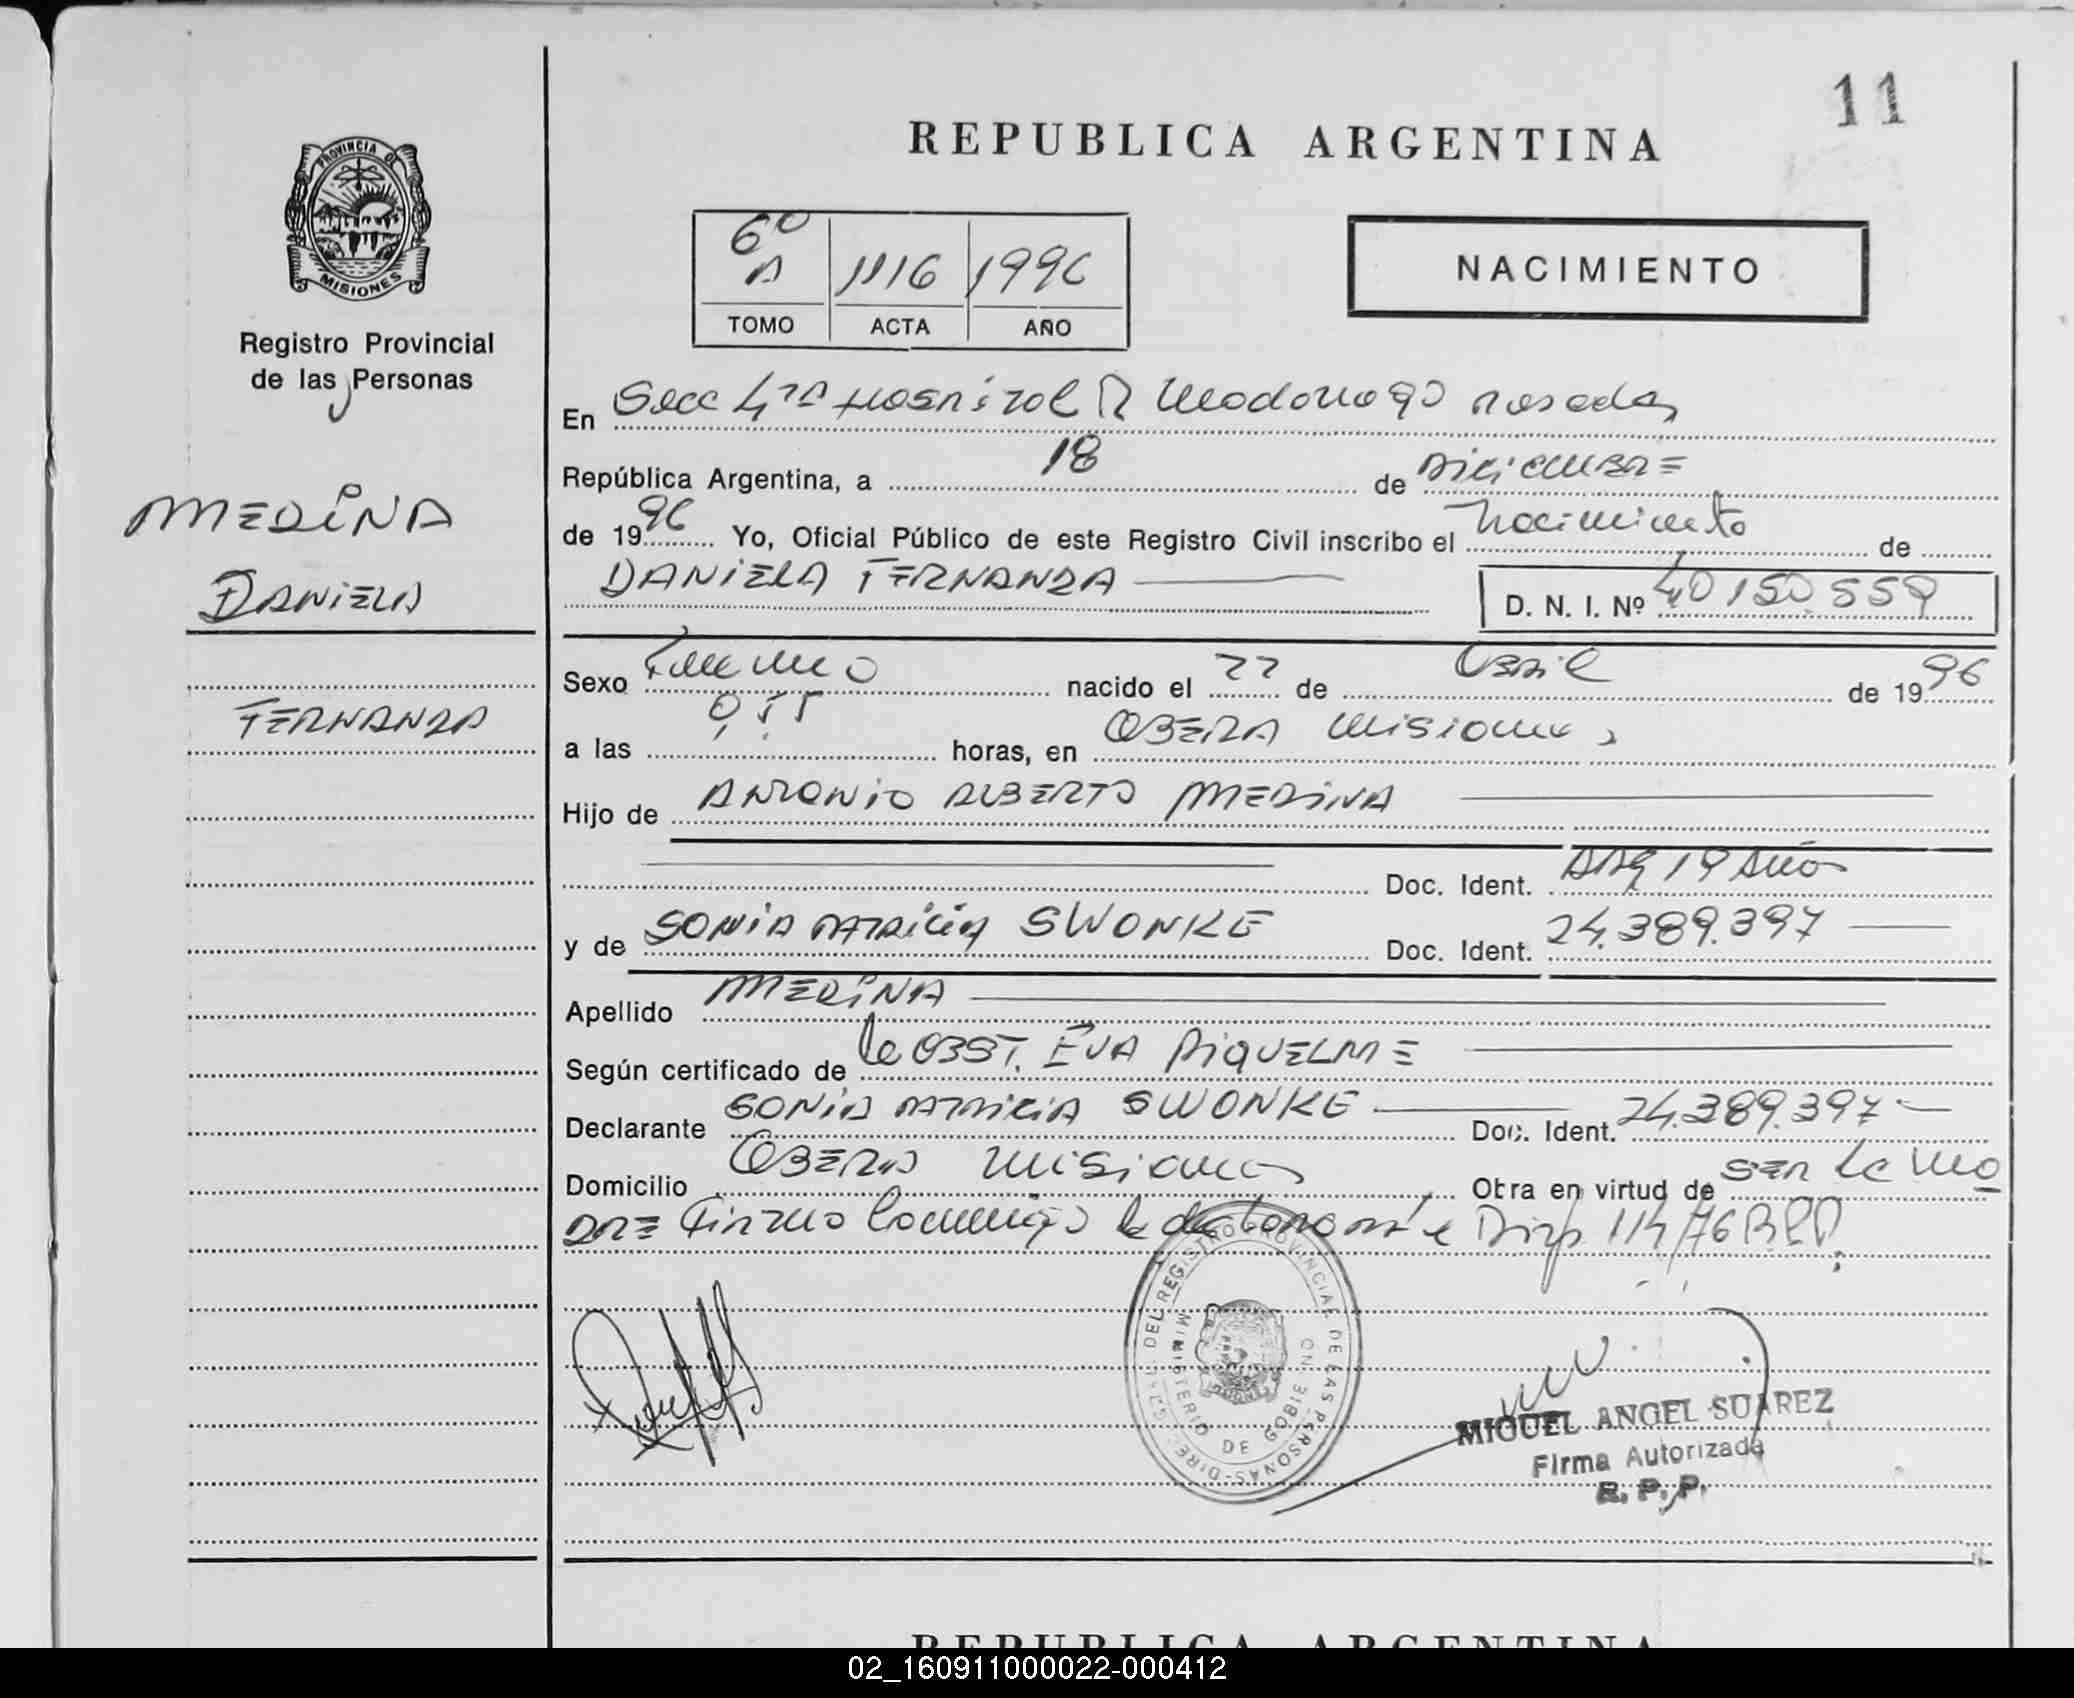 11
REPUBLICA ARGENTINA
PROVINCIA DE
MISIONES
6º A 1116 1996
TOMO ACTA AÑO
NACIMIENTO
Registro Provincial
de las Personas
En Secc 4ta Hospital R Madariaga Posadas
República Argentina, a 18 de Diciembre
de 1996 Yo, Oficial Público de este Registro Civil inscribo el Nacimiento de
MEDINA
DANIELA
FERNANDA
DANIELA FERNANDA
D. N. I. Nº 40150.559
Sexo Femenino nacido el 22 de Abril de 1996
a las horas, en OBERA Misiones,
Hijo de ANTONIO ALBERTO MEDINA
Doc. Ident. ARG 19 Años
y de SONIA PATRICIA SWONKE Doc. Ident. 24.389.397
Apellido MEDINA
Según certificado de la OBST. EVA RIQUELME
Declarante SONIA PATRICIA SWONKE Doc. Ident. 24.389.397
Domicilio OBERA Misiones Obra en virtud de ser la ma
dre Firma conmigo la declarante Disp 114/76
DIREC. GRAL. DEL REGISTRO PROVINCIAL DE LAS PERSONAS
MINISTERIO DE GOBIERNO
MIGUEL ANGEL SUAREZ
Firma Autorizada
R. P. P.
REPUBLICA ARGENTINA
02_160911000022-000412